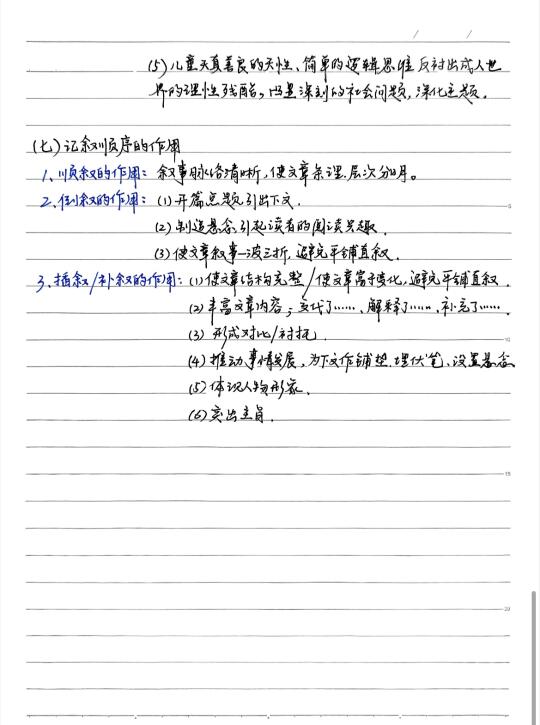 (5)儿童天真善良的天性、简单的逻辑思维反衬出成人世
界的理性残酷，凸显深刻的社会问题，深化主题。
(七)记叙顺序的作用
1、顺叙的作用：叙事脉络清晰，使文章条理、层次分明。
2、倒叙的作用：(1)开篇点题，引出下文.
(2)制造悬念，引起读者的阅读兴趣.
(3)使文章叙事一波三折，避免平铺直叙.
3、插叙/补叙的作用：(1)使文章结构完整/使文章富于变化，避免平铺直叙.
(2)丰富文章内容；交代了……、解释了……、补充了……
(3)形成对比/衬托.
(4)推动事情发展，为下文作铺垫.埋伏笔、设置悬念
(5)体现人物形象.
(6)突出主旨.
5
10
15
20